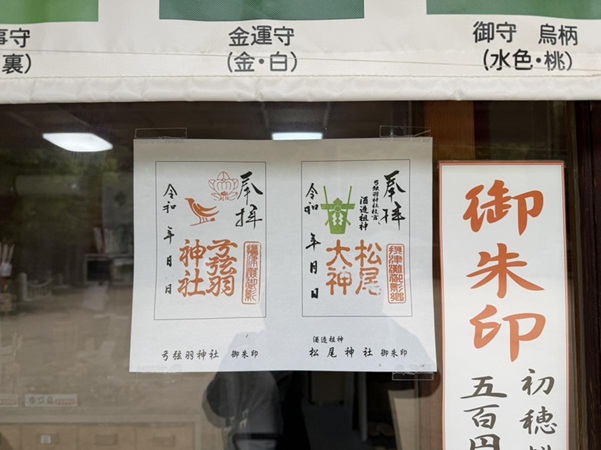 事守
裏)
金運守
(金・白)
御守 烏柄
(水色・桃)
奉拝
弓弦羽
神社
令和 年 月 日
弓弦羽神社 御朱印
奉拝
弓弦羽神社社宮
酒造祖神
松尾
大神
令和 年 月 日
酒造祖神
松尾神社 御朱印
御朱印
初穂
五百円